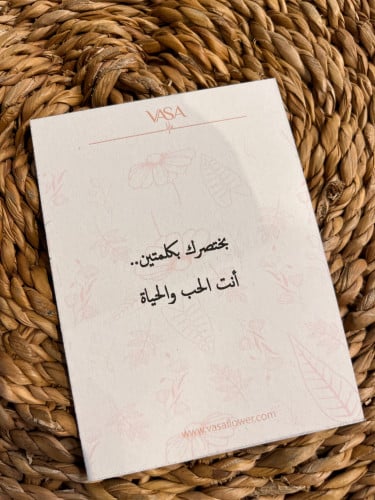 VASA
بختصرك بكلمتين..
أنت الحب والحياة
www.vasaflower.com